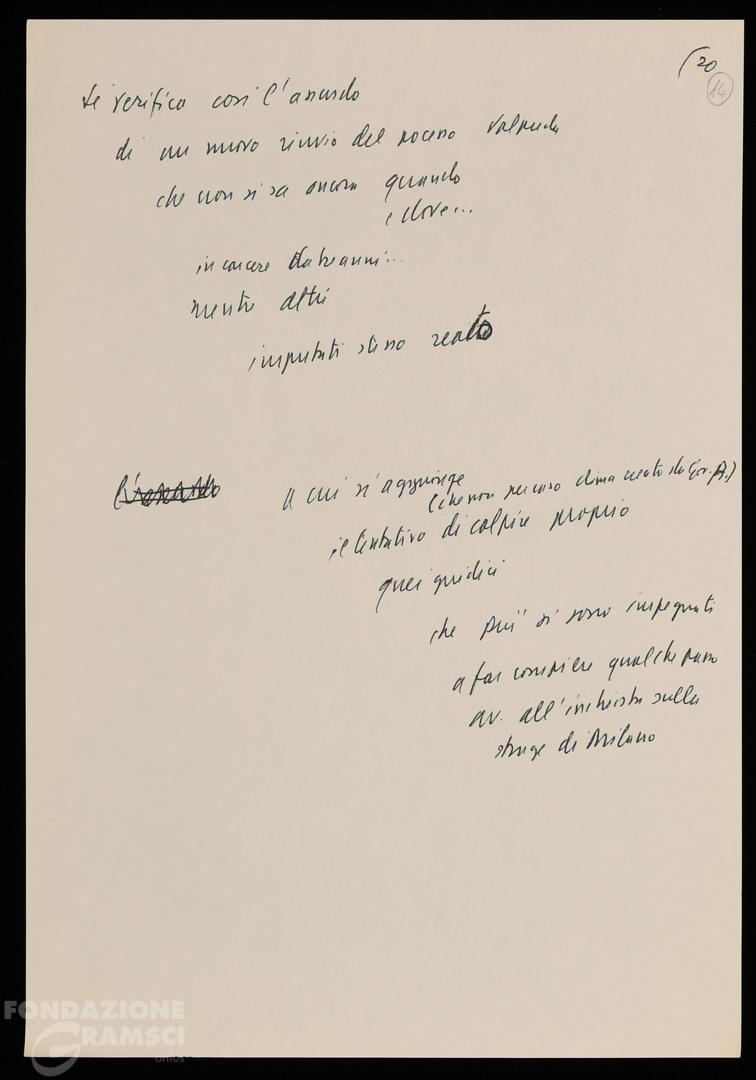 (20
14
si verifica così l'assurdo
di un nuovo rinvio del processo Valpreda
che non si sa ancora quando
e dove...
in carcere da tre anni...
mentre altri
imputati stesso reato
a cui si aggiunge
(che non per caso clima creato da Gov. A.)
il tentativo di colpire proprio
quei giudici
che più si sono impegnati
a far compiere qualche passo
av. all'inchiesta sulla
strage di Milano
FONDAZIONE
GRAMSCI
onlus